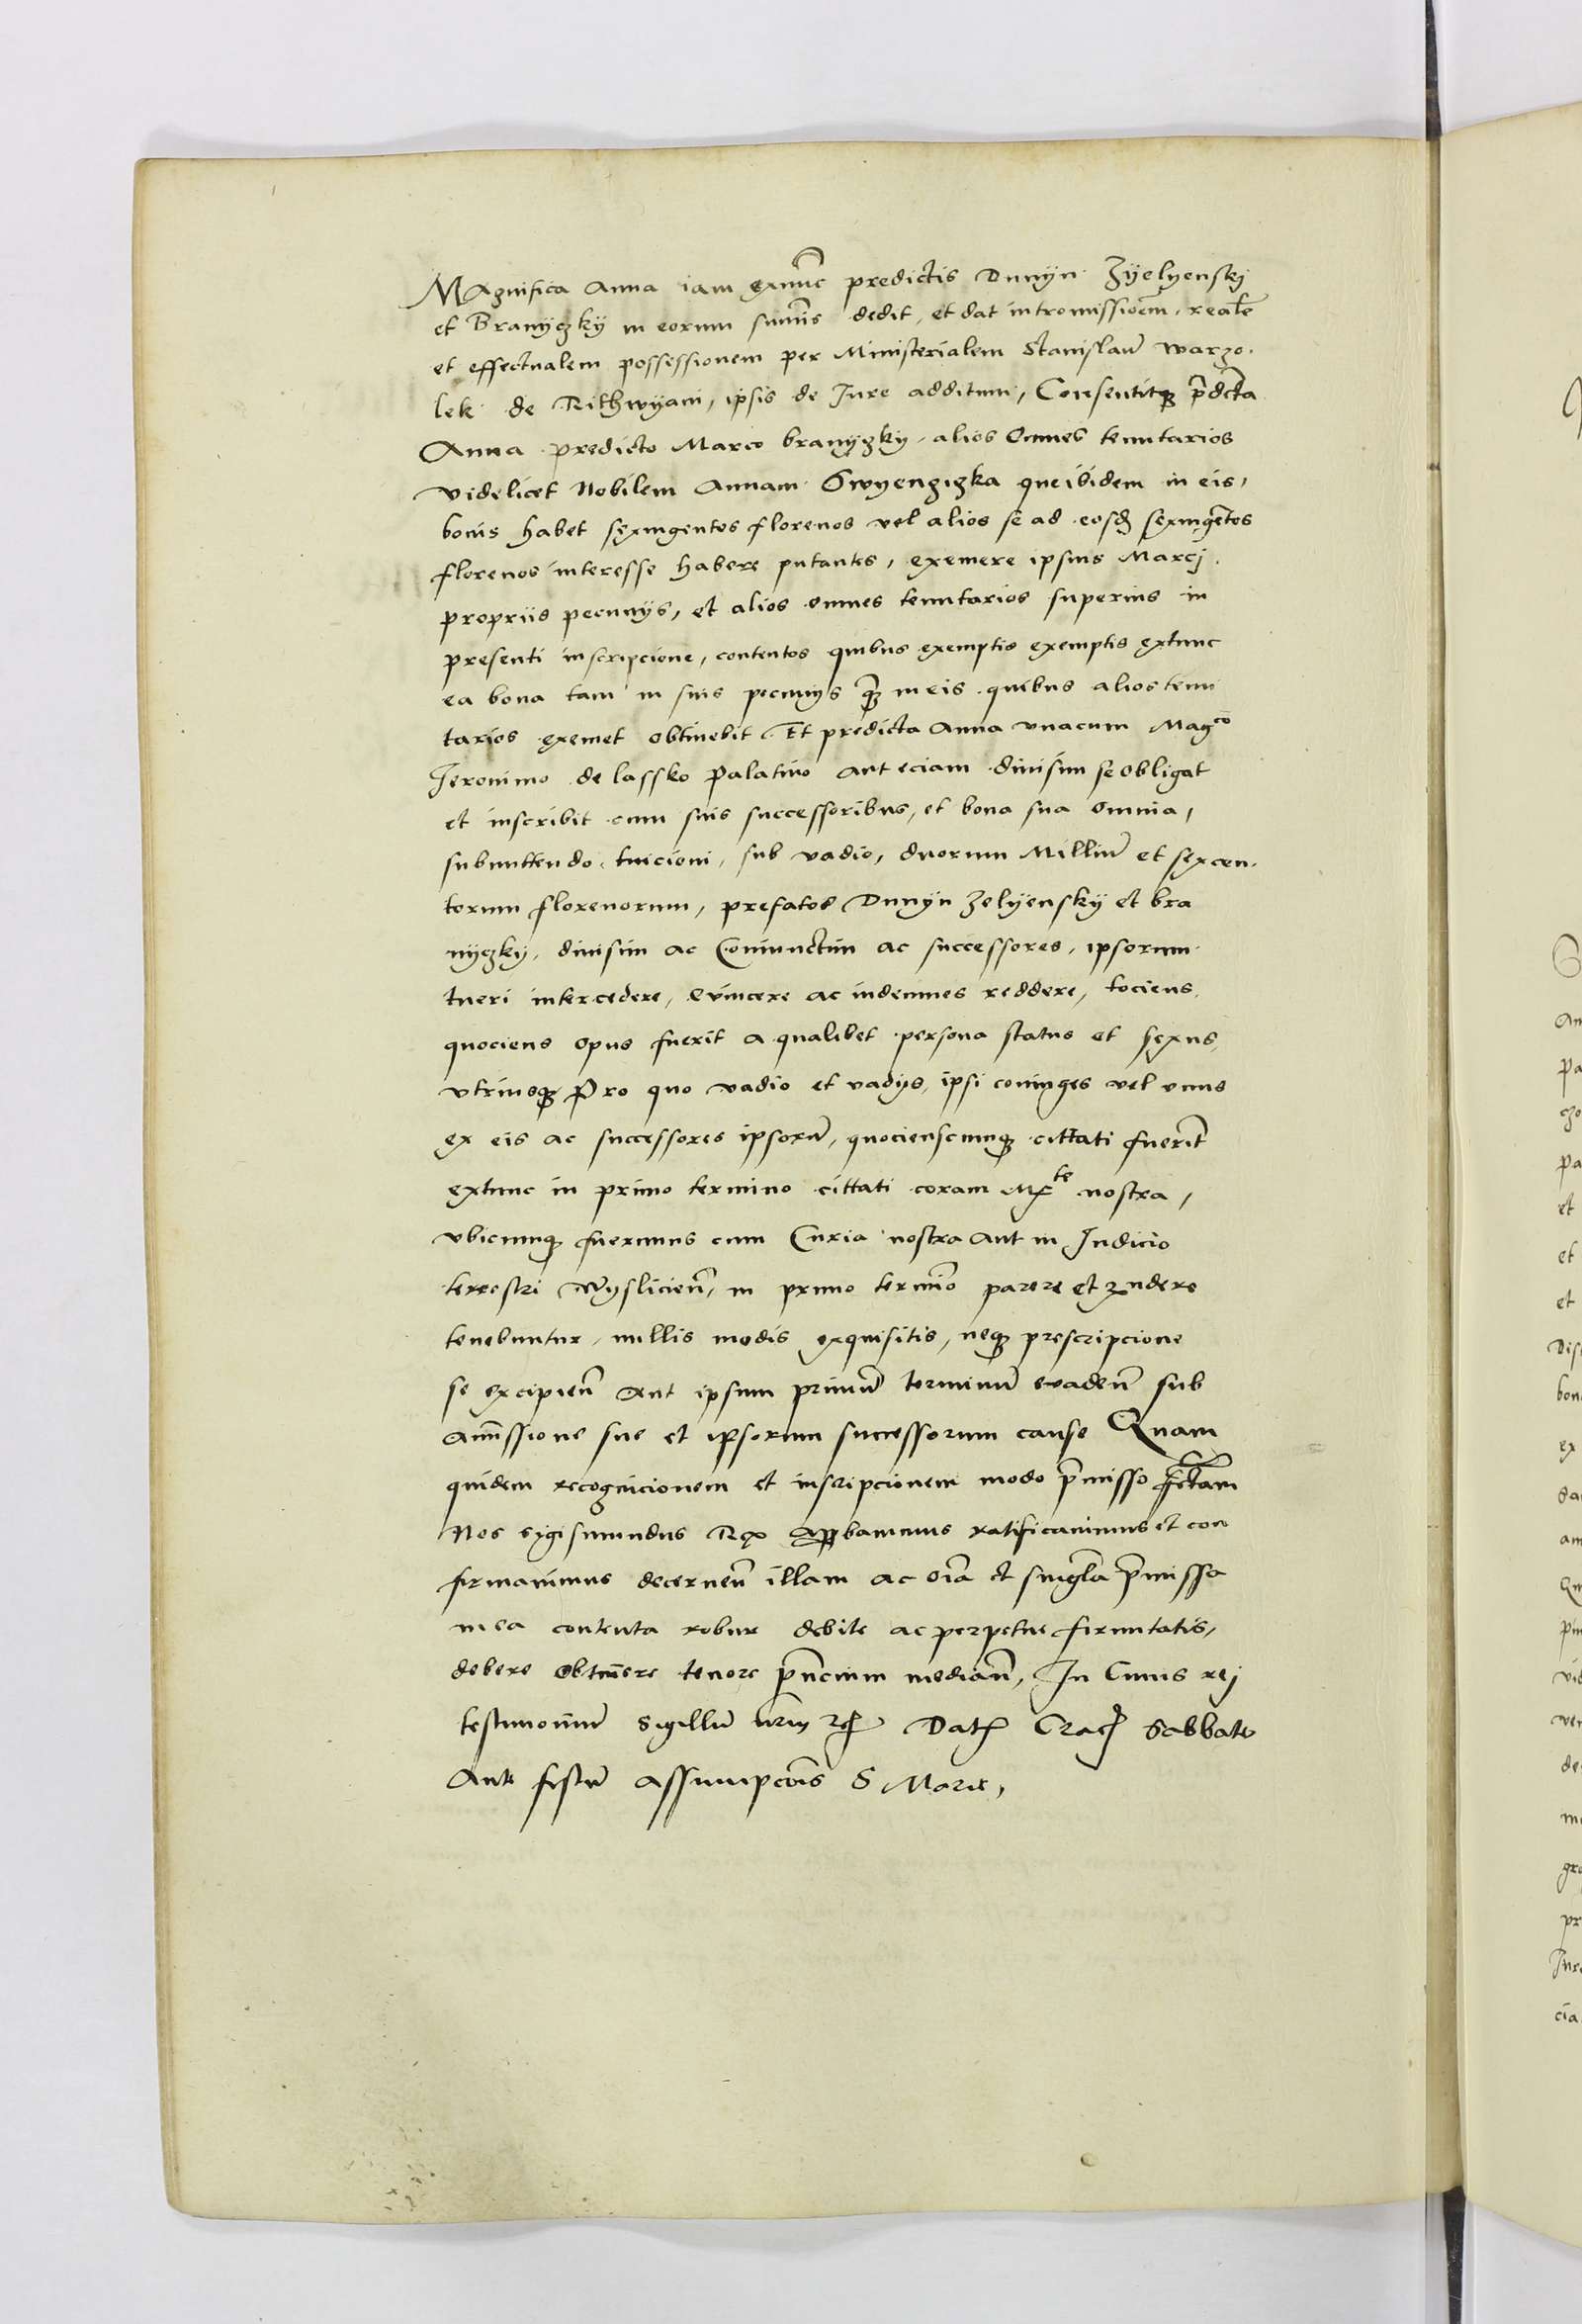 Magnifica Anna iam exnunc predictis Dunyn Zyelyenskj
et Branyczky in eorum sumis dedit, et dat intromissionem, realē
et effectualem possessionem per Ministerialem Stanislaū warzo.
lek de Rithwyani, ipsis de Jure additum, Consentitq3 p̄dcta
Anna predicto Marco branyczky alios Omnes tenutarios
videlicet Nobilem Annam Swyenczizka que ibidem in eis,
bonis habet sexingentos florenos vel alios se ad eosd sexingētos
florenos interesse habere putantes, exemere ipsius Marcj
propriis pecunys, et alios omnes tenutarios superius in
presenti inscripcione, contentos quibus exemptis exemptis extunc
ea bona tam in suis pecunys q3 in eis quibus alios tenu
tarios exemet obtinebit. Et predicta Anna vnacum Mag^co
Jeronimo de lassko palatino Aut eciam diuisim se obligat
et inscribit cum suis successoribus, et bona sua Omnia,
submittendo tuicioni, sub vadio, duorum Milliū et sexcen.
torum florenorum, prefatos Dunyn Zelyensky et bra
nyczky, diuisim ac Coniunctim ac successores, ipsorum
tueri intercedere, Euincere ac indemnes reddere, tociens
quociens opus fuerit a qualibet persona status et sexus,
vtriusq3 Pro quo vadio et vadys, ipsi coniuges vel vnus
ex eis ac successores ipsorū, quocienscunq3 cittati fuerīt
extunc in primo termino cittati coram M^te nostra,
vbicunq3 fuerimus cum Curia nostra Aut in Judicio
terrestri Wysliciēn, in primo termīo parere et rn̄dere
tenebuntur, nullis modis exquisitis, neq3 prescripcione
se excipien̄ Aut ipsum primū terminū euaden̄ sub
amissione sue et ipsorum successorum cause Quam
quidem recognicionem et inscripcionem modo p̄misso fctam
Nos sigismundus Rex Approbamus ratificauimus et con
firmauimus decernen̄ illam ac oīa et singla p̄missa
in ea contenta robur debite ac perpetue firmitatis,
debere obtinere tenore p̄ncium median̄, In Cuius rej
testimoniū sigillū nrm̄ Dat Crac Sabbato
Ante festū assumpcōis S Marie,